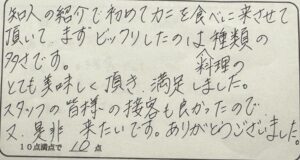 知人の紹介で初めてカニを食べに来させて
頂いて、まずビックリしたのは種類の
多さです。
料理の
とても美味しく頂き、満足しました。
スタッフの皆様の接客も良かったので
又、是非 来たいです。ありがとうございました。
10点満点で 10 点